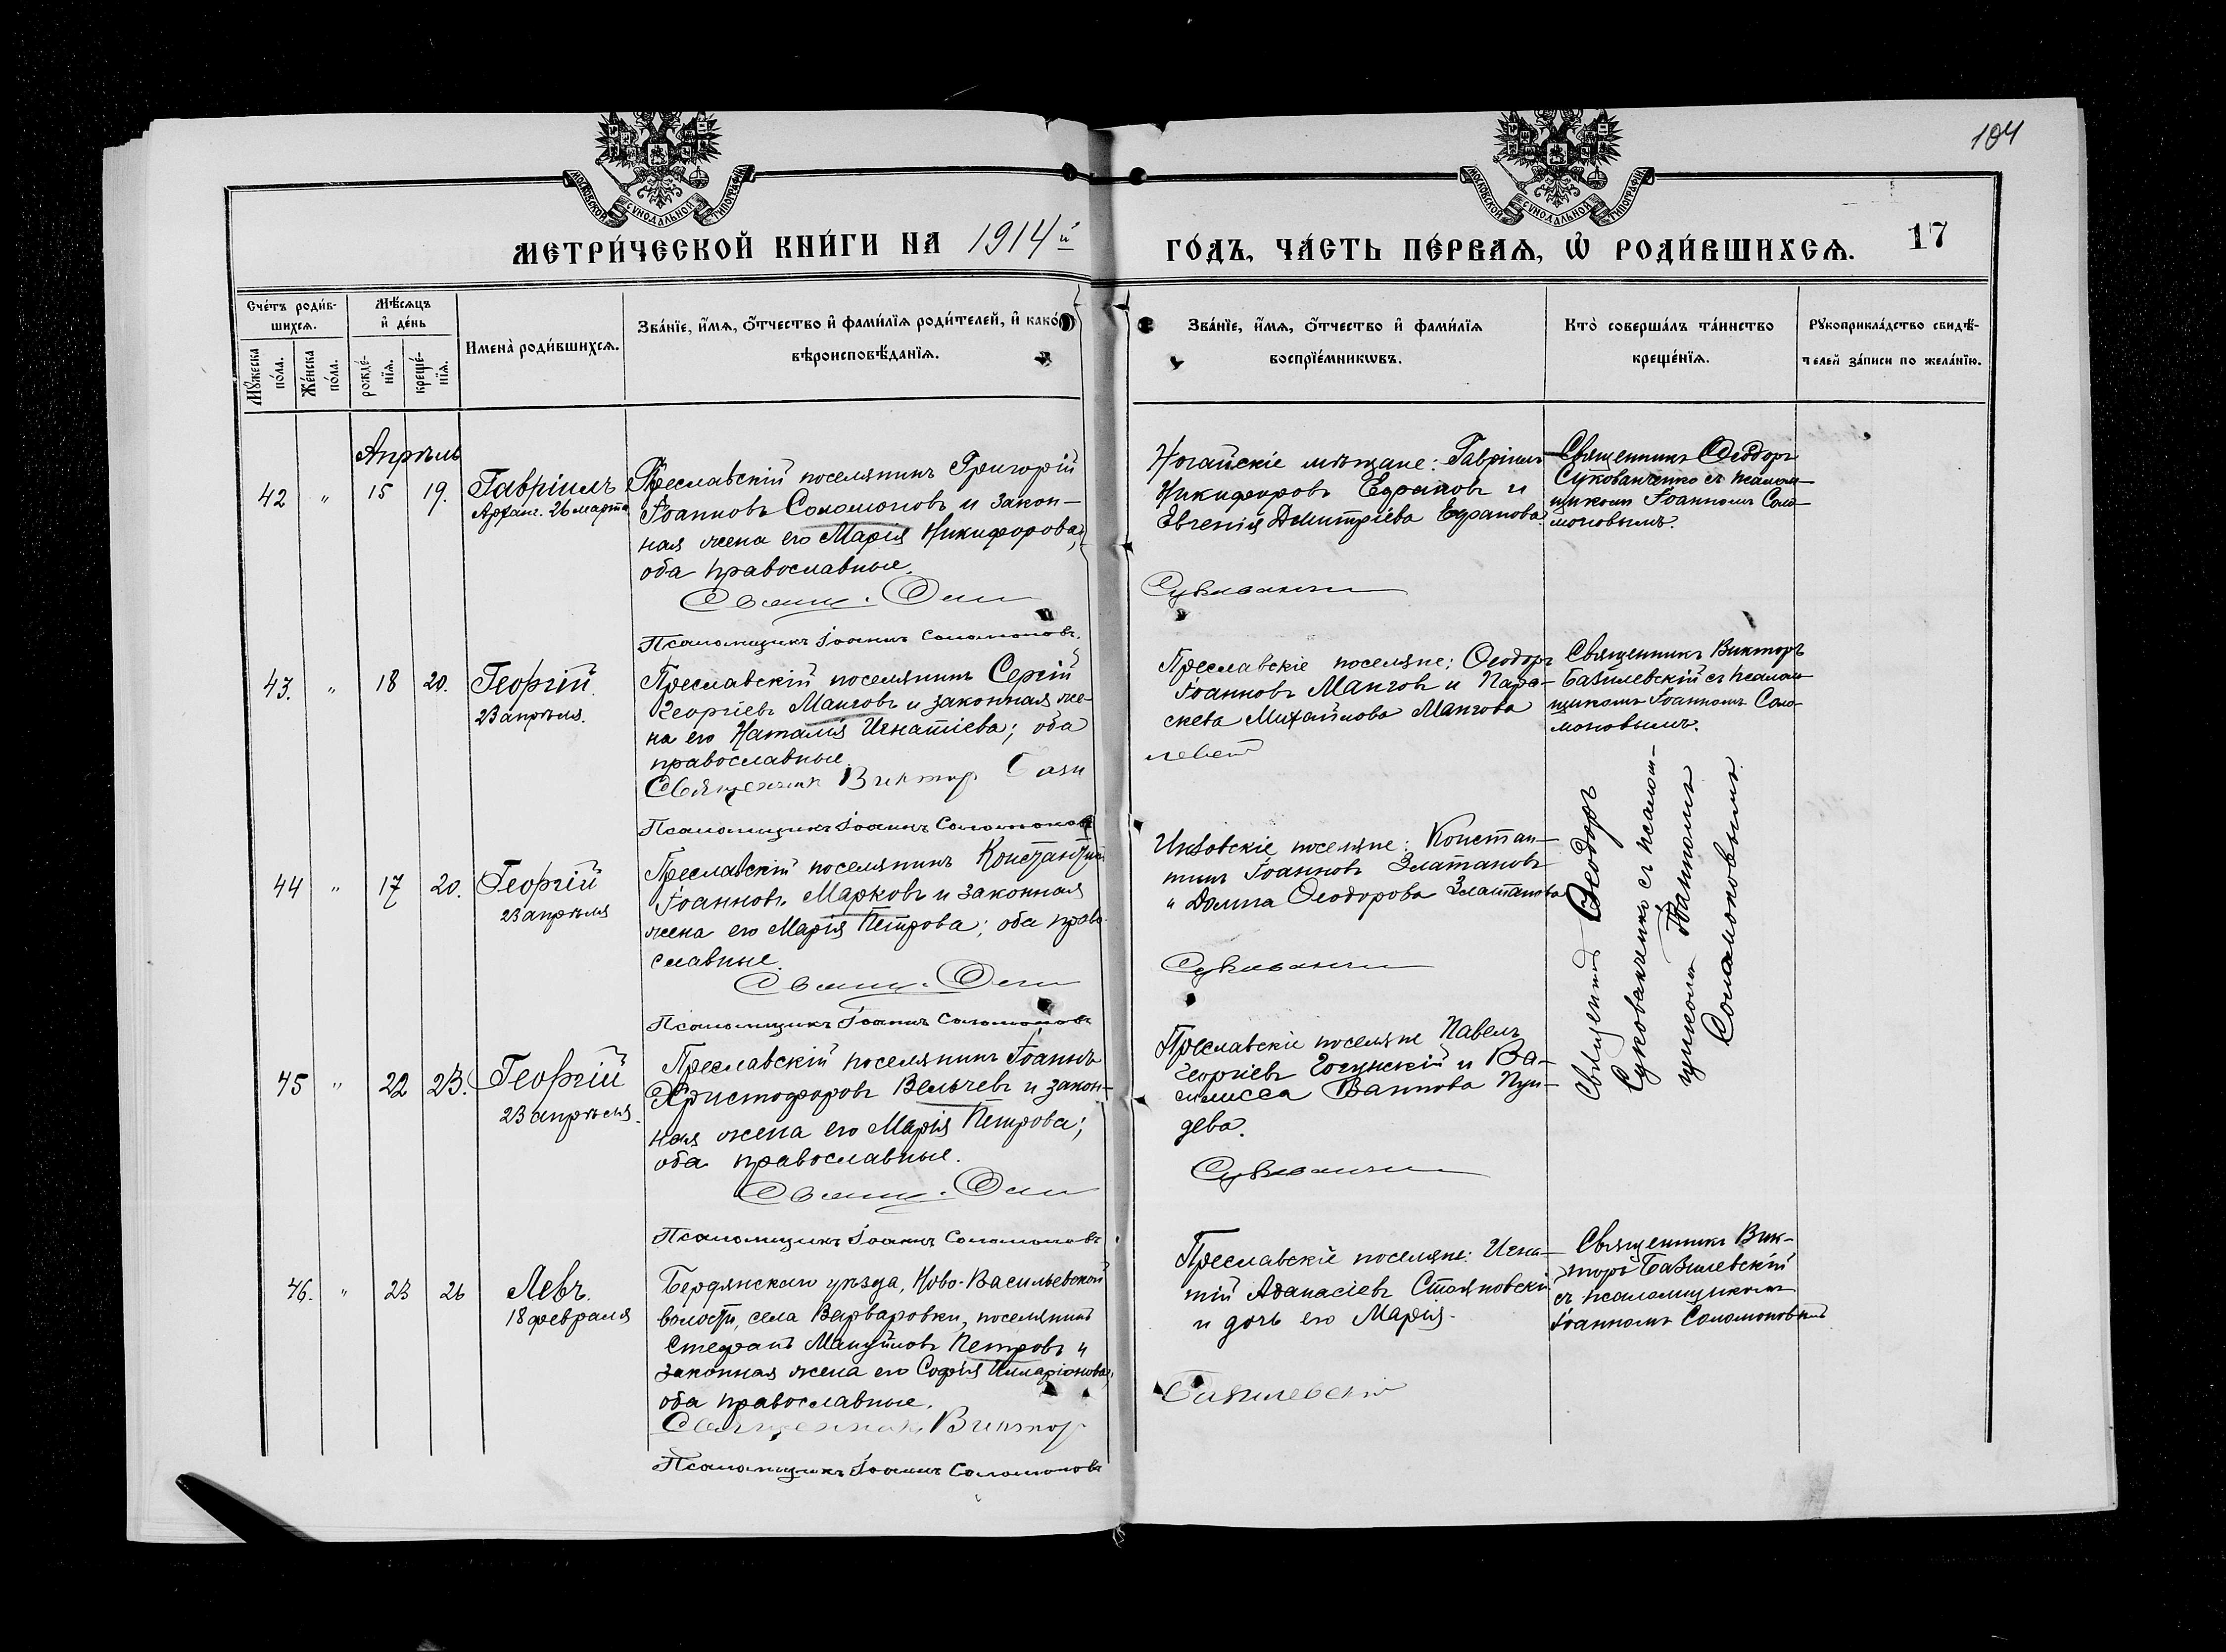 104
МОСКОВСКОЙ СѴНОДАЛЬНОЙ ТИПОГРАФІИ
МОСКОВСКОЙ СѴНОДАЛЬНОЙ ТИПОГРАФІИ
МЕТРИ́ЧЕСКОЙ КНИ́ГИ НА 1914й
ГО́ДЪ, ЧА́СТЬ ПЕ́РВАѦ, Ѡ РОДИ́ВШИХСѦ. 17
Сче́тъ роди́в-
шихсѧ.
Мꙋ́жеска
по́ла.
Же́нска
по́ла.
Мѣ́сѧцъ
и҆ де́нь
рожде́-
нїѧ.
креще́-
нїѧ.
И҆мена̀ роди́вшихсѧ.
Зва́нїе, и҆́мѧ, ѻ҆́тчество и҆ фами́лїѧ роди́телей, и҆ како́
вѣроисповѣ́данїѧ.
Зва́нїе, и҆́мѧ, ѻ҆́тчество и҆ фами́лїѧ
воспрїе́мникѡвъ.
Кто̀ соверша́лъ та́инство
креще́нїѧ.
Рꙋкоприкла́дство свидѣ́-
телей за́писи по жела́нїю.
Апрѣль
42 " 15 19. Гавріилъ
Архан. 26 марта
Преславскій поселянинъ Григорій
Іоанновъ Соломоновъ и закон-
ная жена его Марія Никифорова,
оба православные.
Свящ. Ѳеод
Псаломщикъ Іоаннъ Соломоновъ.
Ногайскіе мѣщане: Гавріилъ
Никифоровъ Едраковъ и
Евгенія Димитріева Едракова
Сукованченко
Священникъ Ѳеодоръ
Сукованченко съ псалом-
щикомъ Іоанномъ Соло-
моновымъ.
43. " 18 20. Георгій.
23 апрѣля.
Преславскій поселянинъ Сергій
Георгіевъ Манговъ и законная же-
на его Наталія Игнатіева; оба
православные.
Священникъ Викторъ Бази
Псаломщикъ Іоаннъ Соломоновъ
Преславскіе поселяне: Ѳеодоръ
Іоанновъ Манговъ и Пара-
скева Михайлова Мангова
левскій
Священникъ Викторъ
Базилевскій съ псалом-
щикомъ Іоанномъ Соло-
моновымъ.
44 " 17 20. Георгій
23 апрѣля
Преславскій поселянинъ Константинъ
Іоанновъ Марковъ и законная
жена его Марія Петрова; оба право-
славные.
Свящ. Ѳеод
Псаломщикъ Іоаннъ Соломоновъ
Инзовскіе поселяне: Констан-
тинъ Іоанновъ Златановъ
и Домна Ѳеодорова Златанова
Сукованченко
Священникъ Ѳеодоръ
Сукованченко съ псалом-
щикомъ Іоанномъ
Соломоновымъ
45 " 22 23. Георгій
23 апрѣля.
Преславскій поселянинъ Іоаннъ
Христофоровъ Вельчевъ и закон-
ная жена его Марія Петрова;
оба православные.
Свящ. Ѳеод
Псаломщикъ Іоаннъ Соломоновъ
Преславскіе поселяне Павелъ
Георгіевъ и Ва-
силисса Ваннова Пун-
дева.
Сукованченко
46. " 23 26 Левъ.
18 февраля
Бердянскаго уѣзда, Ново-Васильевской
волости, села Варваровки, поселянинъ
Стефанъ Мануйловъ Петровъ и
законная жена его Софія Илларіонова;
оба православные.
Священникъ Викторъ
Псаломщикъ Іоаннъ Соломоновъ
Преславскіе поселяне: Игна-
тій Аѳанасіевъ Стояновскій
и дочь его Марія.
Базилевскій
Священникъ Вик-
торъ Базилевскій
съ псаломщикомъ
Іоанномъ Соломоновымъ